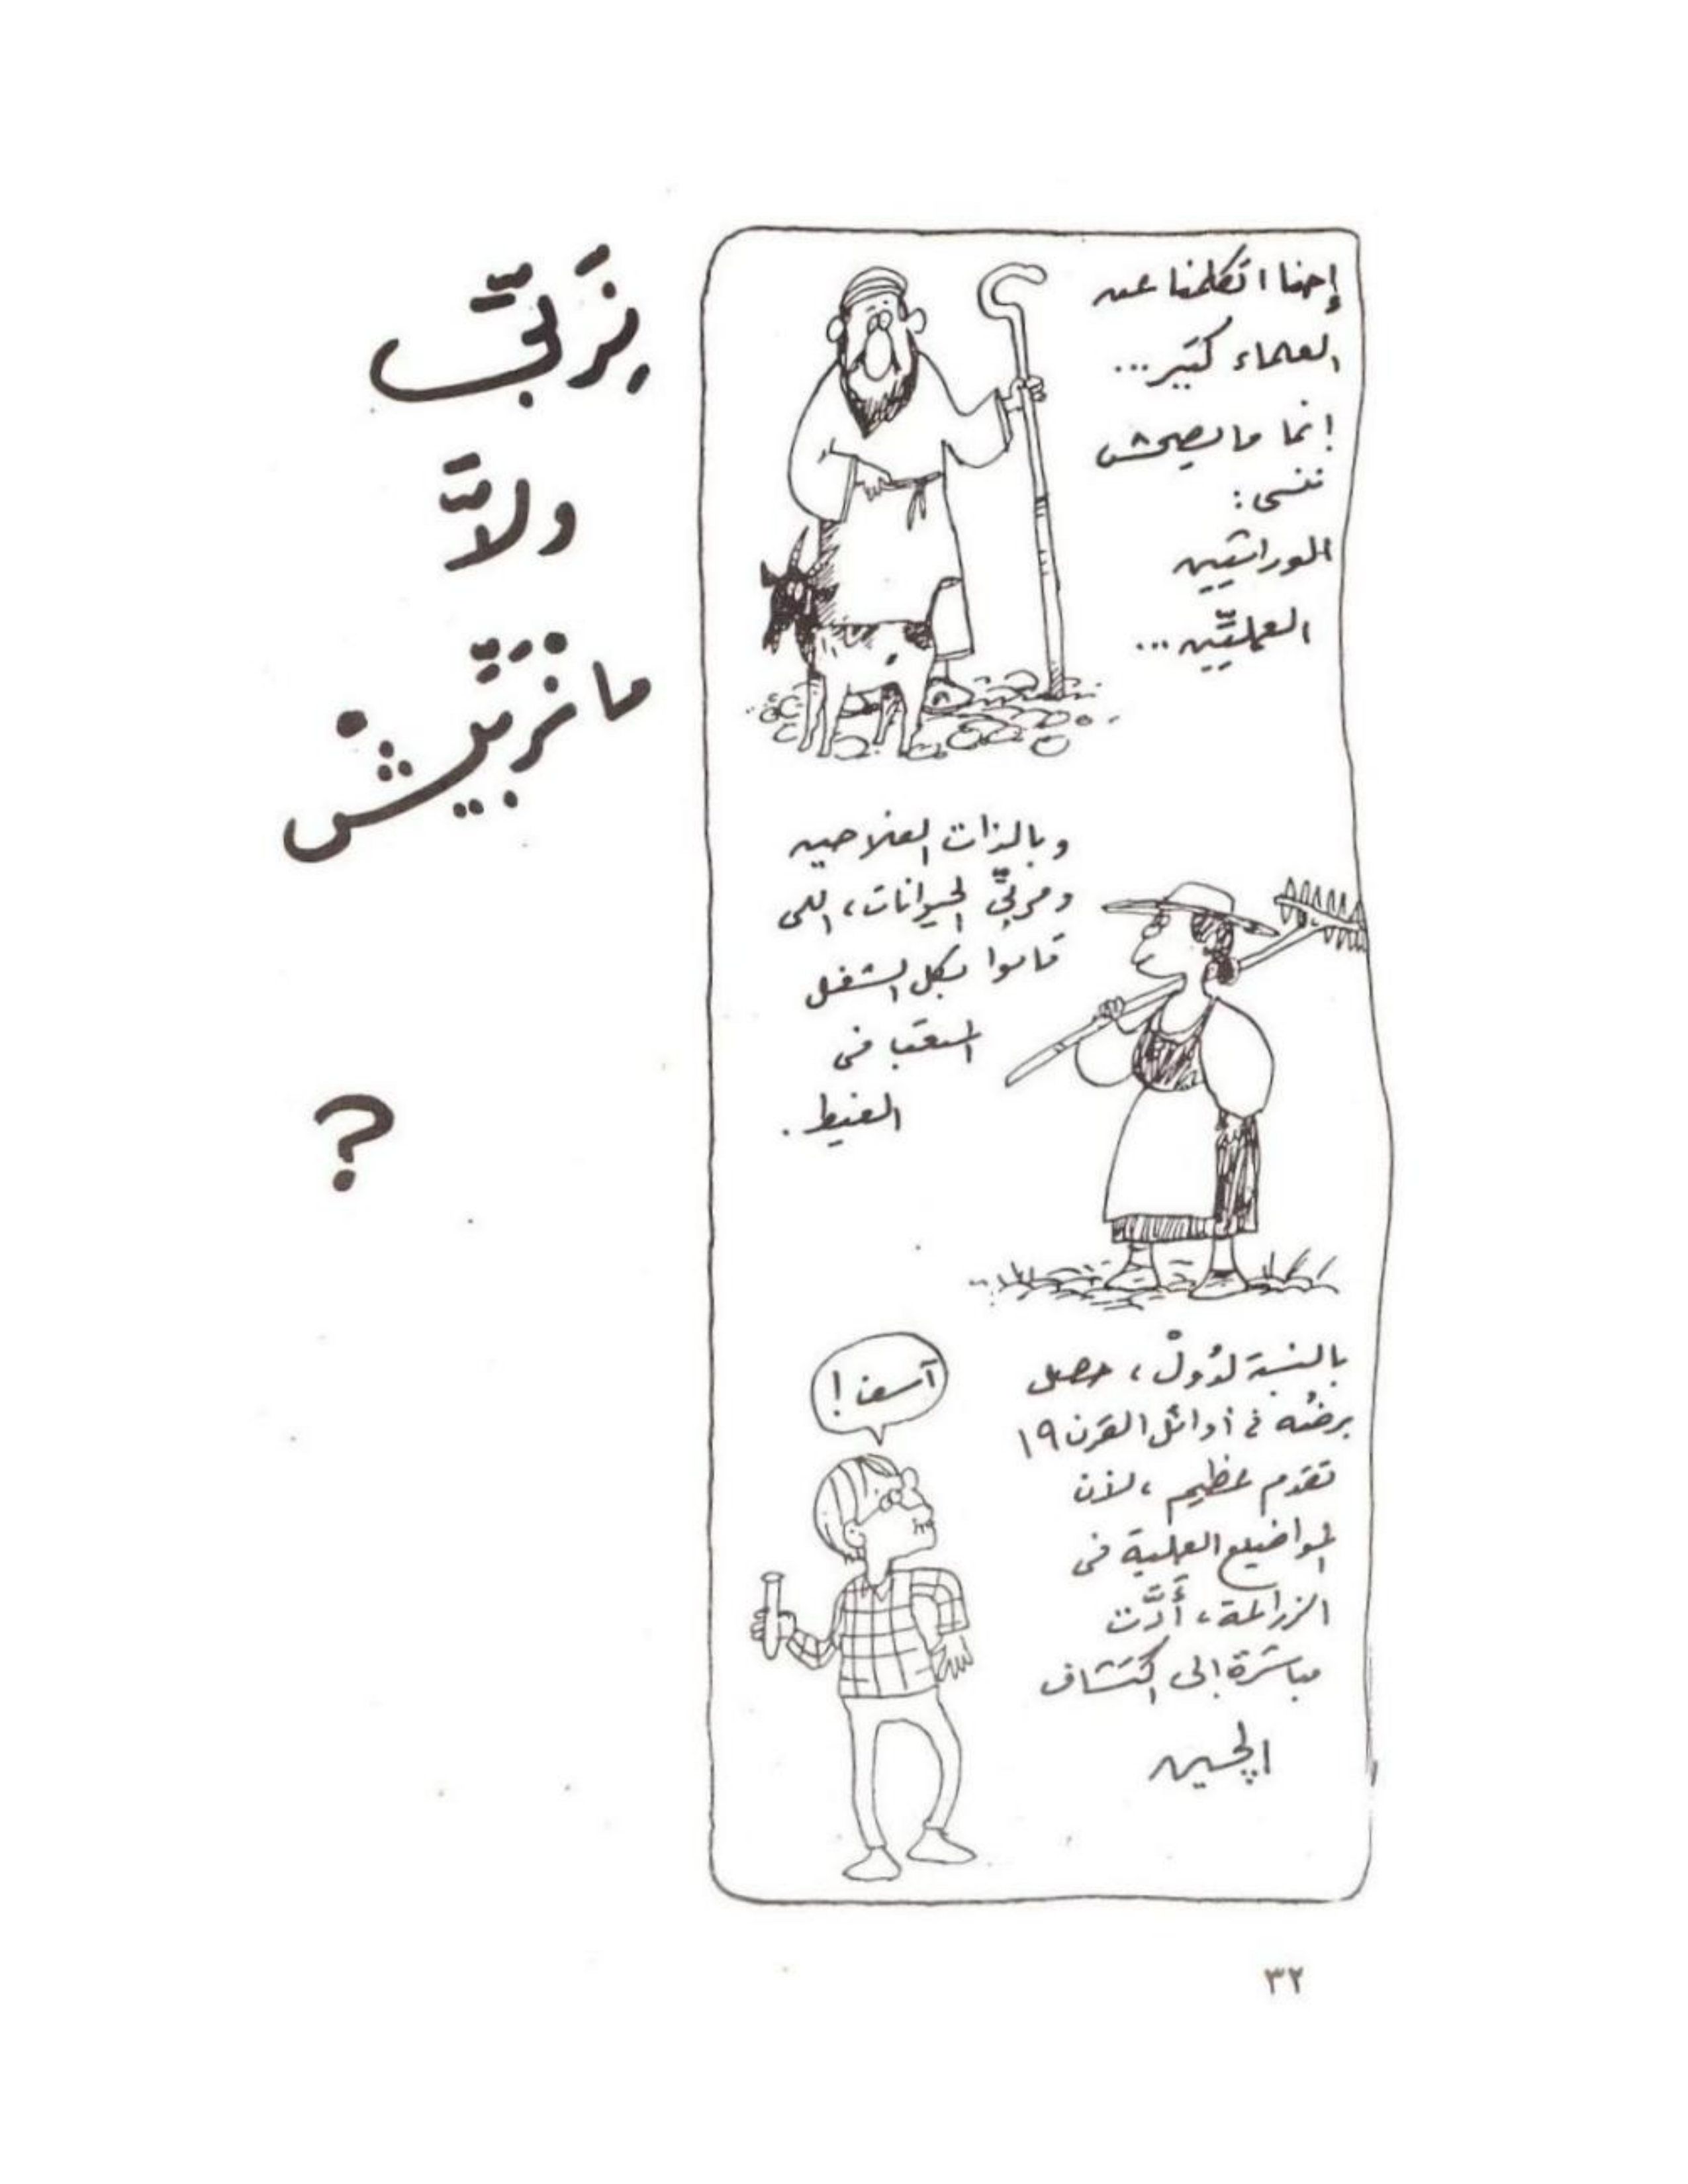 نِرَبِّى
ولاَّ
مانْرَبِّيشْ
?
إحنا اتكلمنا عن
العلماء كتير...
إنما مايصحش
ننسى:
الوراثيين
العمليّين...
وبالذات الفلاحين
ومربّى الحيوانات، اللى
قاموا بكل الشغل
فى
الغيط.
بالنسبة لدُولْ، حصل
برضُه فى أوائل القرن ١٩
تقدم عظيم، لأن
المواضيع العلمية فى
الزراعة، أَدَّت
مباشرة إلى اكتشاف
الچين
آسف!
٣٢